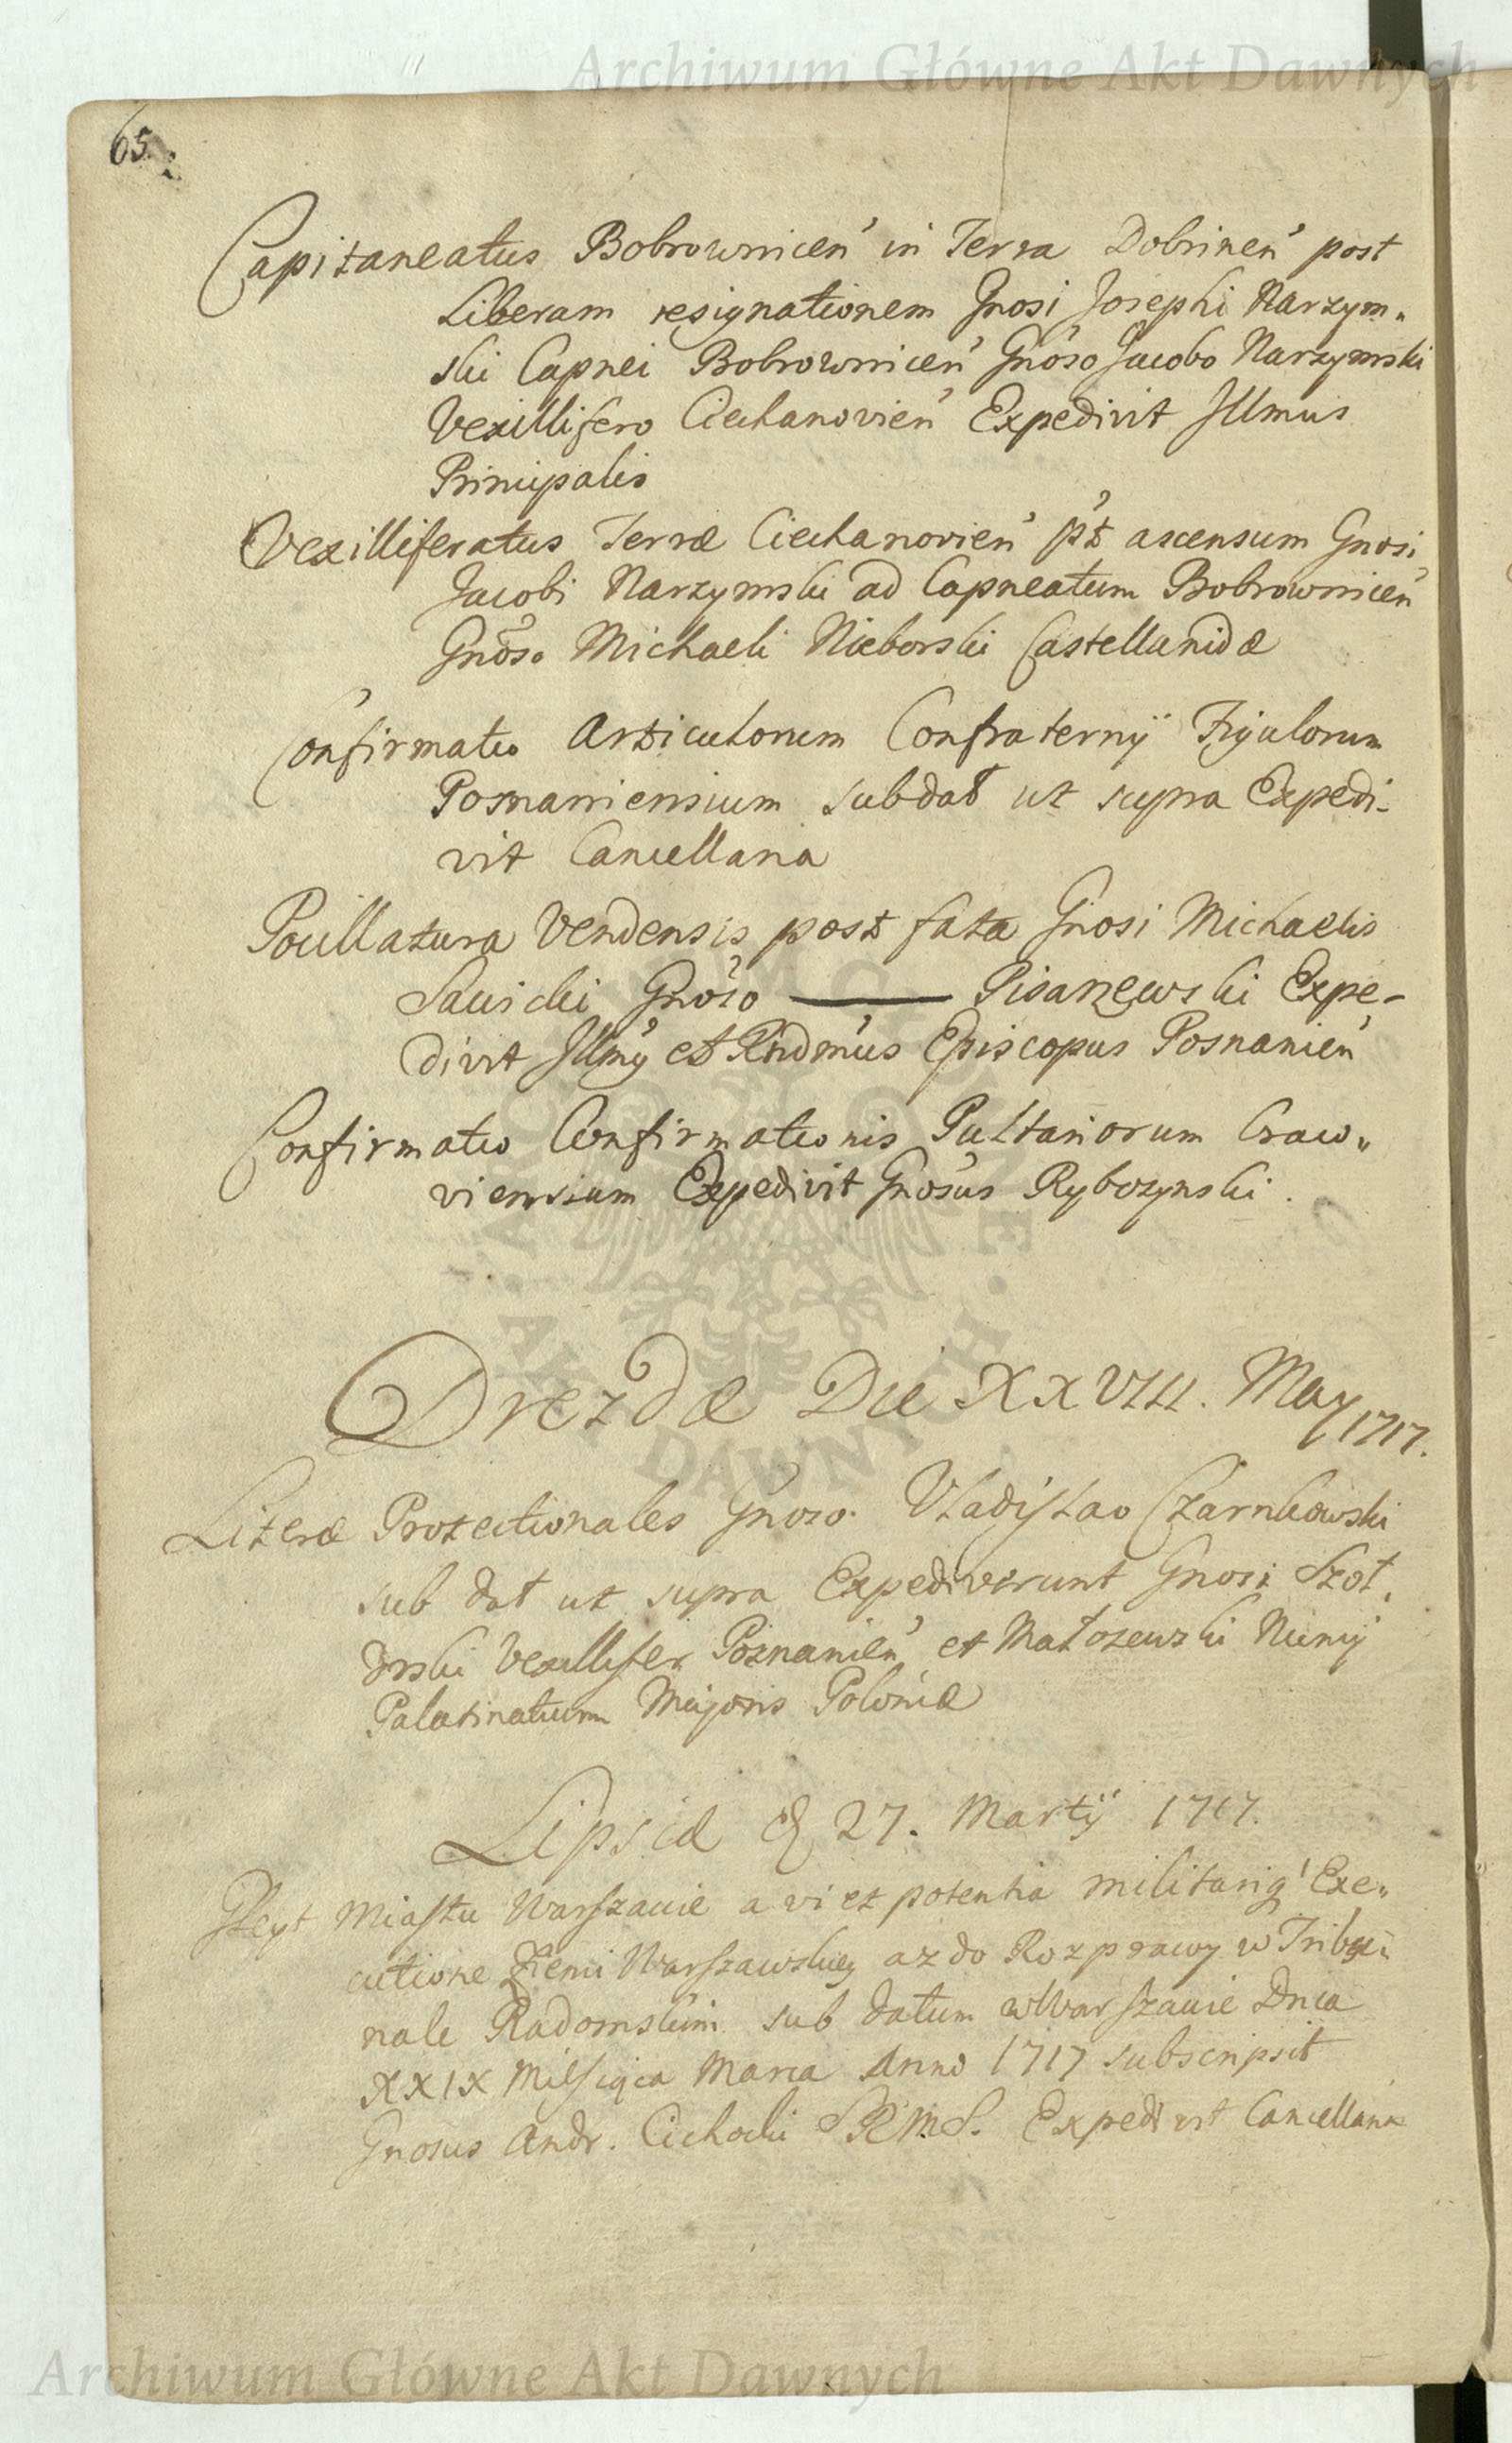 Archiwum Główne Akt Dawnych
65.
Capitaneatus Bobrowniceń in Terra Dobrineń post
Liberam resignationem Gnosi Josephi Narzym„
ski Capnei Bobrowniceń Gnoso Jacobo Narzymski
Vexillifero Ciechanovień Expedivit Illmus
Principalis
Vexilliferatus Terræ Ciechanovień pt ascensum Gnosi
Jacobi Narzymski ad Capneatum Bobrowniceń
Gnoso Michaeli Nieborski Castellanidæ
Confirmatio Articulorum Confraternÿ Figulorum
Posnaniensium sub dat ut supra Expedi-
vit Cancellaria
Pocillatura Vendensis post fata Gnosi Michaelis
Sawicki Gnoso ——— Pisanzewski Expe-
divit Illmy et Rndmus Episcopus Posnanień
Confirmatio Confirmationis Pultariorum Craco„
viensium Expedivit Gnosus Rybczynski.
Drezdæ Die XXVIII. May 1717.
Literæ Protectionales Gnoso. Vladislao Czarnkowski
sub dat ut supra Expediverunt Gnosi Szoł„
drski Vexillifer Poznanień et Małozewski Nuncij
Palatinatuum Majoris Poloniæ
Lipsiæ d 27. Martÿ 1717.
Gleyt Miastu Warszawie a vi et potentia militariq' Exe„
cutione Ziemi Warszawskiey az do Rozprawy w Tribu„
nale Radomskim sub datum w Warszawie Dnia
XXIX Miesiąca Marca Anno 1717 subscripsit
Gnosus Andr. Cichocki S.R.M.S. Expedivit Cancellaria
Archiwum Główne Akt Dawnych